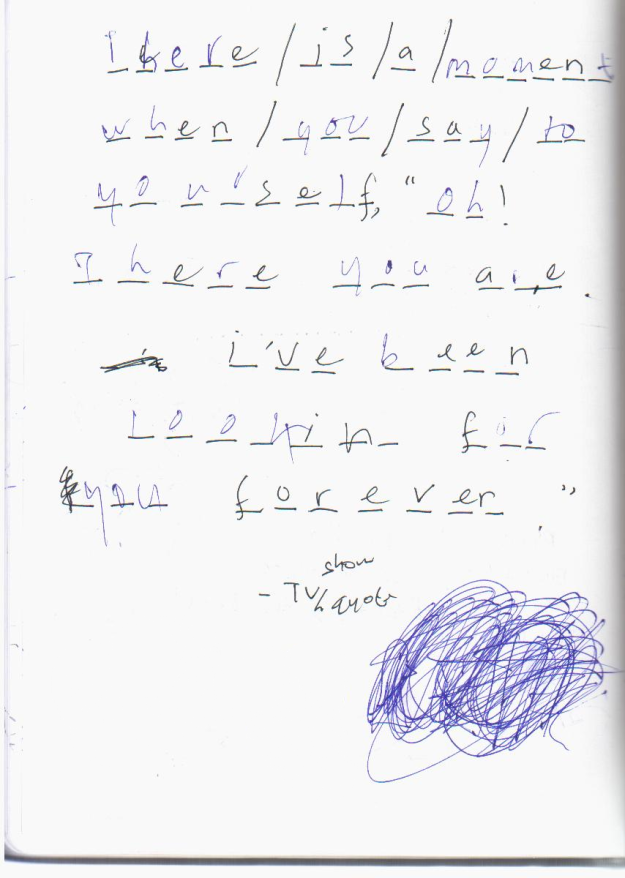 There / is / a / moment
when / you / say / to
yourself, "Oh!
There you are.
I've been
lookin for
you forever."
show
- TV quote